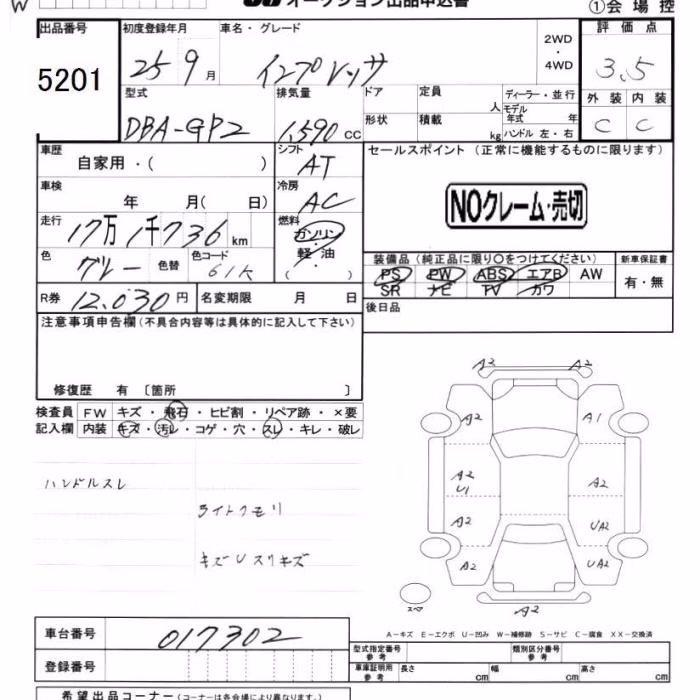 W
オークション出品申込書
①会場控
出品番号 初度登録年月 車名・グレード 2WD・4WD 評価点
5201 25 9月 インプレッサ 3.5
型式 排気量 ドア 定員 人 ディーラー・並行 外装 内装
DBA-GP2 1,590cc 形状 積載 kg モデル年式 年 ハンドル 左・右 C C
車歴 自家用・( ) シフト AT セールスポイント (正常に機能するものに限ります)
車検 年 月( 日) 冷房 AC NOクレーム・売切
走行 17万1千736km 燃料 ガソリン・軽油 ( )
色 グレー 色替 色コード 61K 装備品 (純正品に限り○をつけてください) 新車保証書
PS PW ABS エアB AW 有・無
SR ナビ TV カワ
R券 12,030円 名変期限 月 日 後日品
注意事項申告欄 (不具合内容等は具体的に記入して下さい)
修復歴 有 〔箇所 〕
検査員 FW キズ・飛石・ヒビ割・リペア跡・×要
記入欄 内装 キズ・汚レ・コゲ・穴・スレ・キレ・破レ
ハンドルスレ
ライトクモリ
キズUスリキズ
A2 A2
A2 A1
A2 U1 A2
A2 UA2
A2 UA2
スペア A2
A-キズ E-エクボ U-凹み W-補修跡 S-サビ C-腐食 XX-交換済
車台番号 017302
型式指定番号 参考 類別区分番号 参考
登録番号 車庫証明用 参考 長さ cm 幅 cm 高さ cm
希望出品コーナー (コーナーは各会場により異なります。)